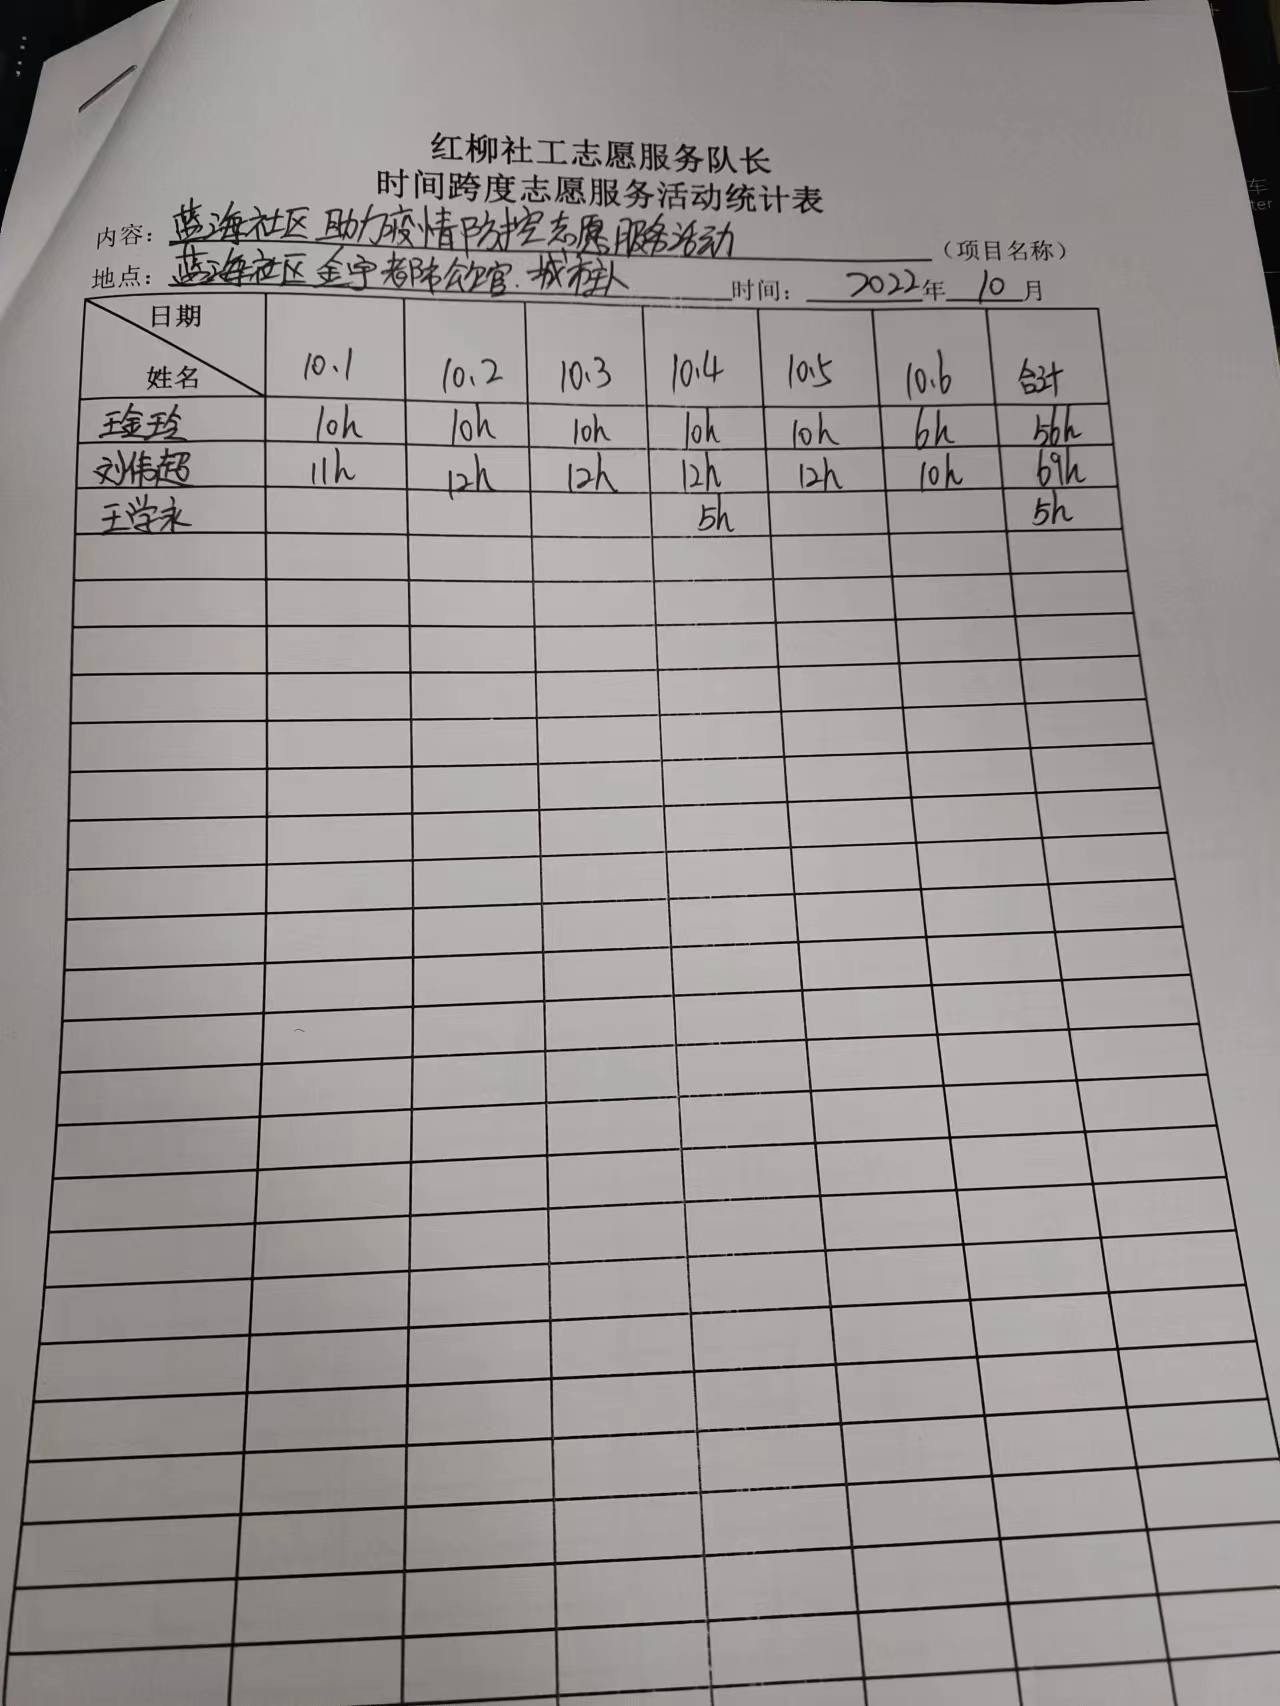 红柳社工志愿服务队长
时间跨度志愿服务活动统计表
内容：蓝海社区助力疫情防控志愿服务活动（项目名称）
地点：蓝海社区金宇都市公官.城市 时间：2022年10月
日期 10.1 10.2 10.3 10.4 10.5 10.6 合计
姓名
王金玲 10h 10h 10h 10h 10h 6h 56h
刘伟超 11h 12h 12h 12h 12h 10h 69h
王学永 5h 5h
车
ter